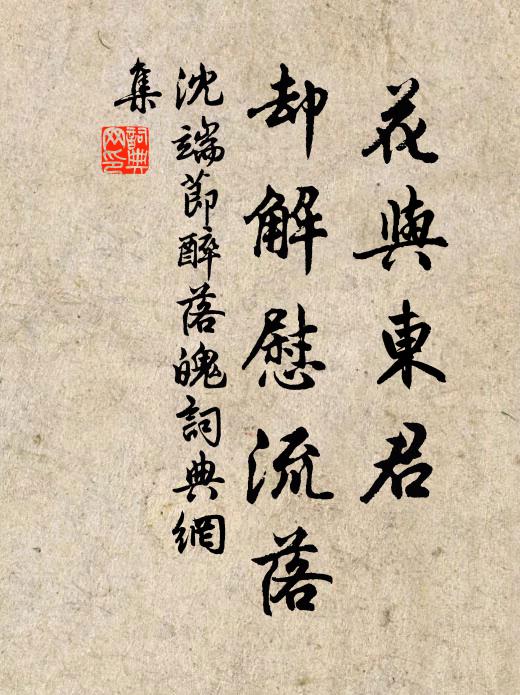 花與東君
却解慰流落
沈端節醉落魄詞典網
集
詞典網印